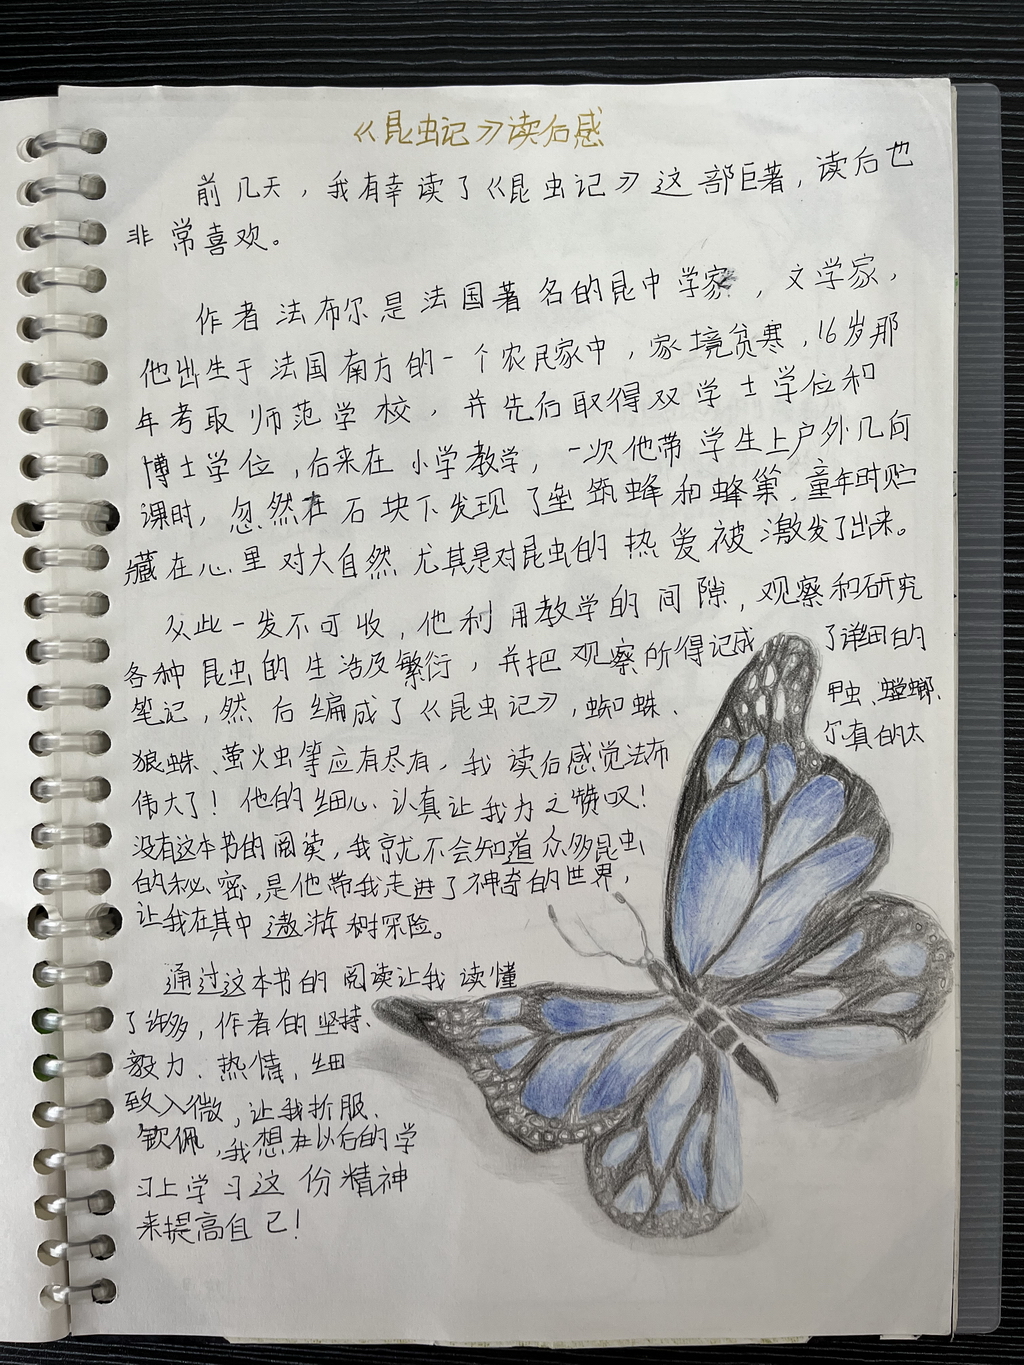 《昆虫记》读后感
前几天，我有幸读了《昆虫记》这部巨著，读后也
非常喜欢。
作者法布尔是法国著名的昆中学家，文学家，
他出生于法国南方的一个农民家中，家境贫寒，16岁那
年考取师范学校，并先后取得双学士学位和
博士学位，后来在小学教学，一次他带学生上户外几何
课时，忽然在石块下发现了垒筑蜂和蜂巢，童年时贮
藏在心里对大自然尤其是对昆虫的热爱被激发了出来。
从此一发不可收，他利用教学的间隙，观察和研究
各种昆虫的生活及繁衍，并把观察所得记成了详细的
笔记，然后编成了《昆虫记》，蜘蛛、甲虫、螳螂、
狼蛛、萤火虫等应有尽有，我读后感觉法布尔真的太
伟大了！他的细心、认真让我为之赞叹！
没有这本书的阅读，我就不会知道众多昆虫
的秘密，是他带我走进了神奇的世界，
让我在其中遨游和探险。
通过这本书的阅读让我读懂
了许多，作者的坚持、
毅力、热情、细
致入微，让我折服、
钦佩，我想在以后的学
习上学习这份精神
来提高自己！